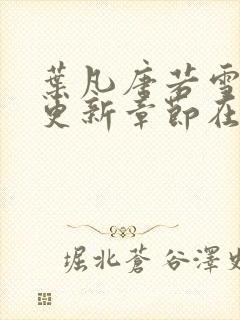 葉凡唐若雪
更新章節在
堀北蒼谷澤